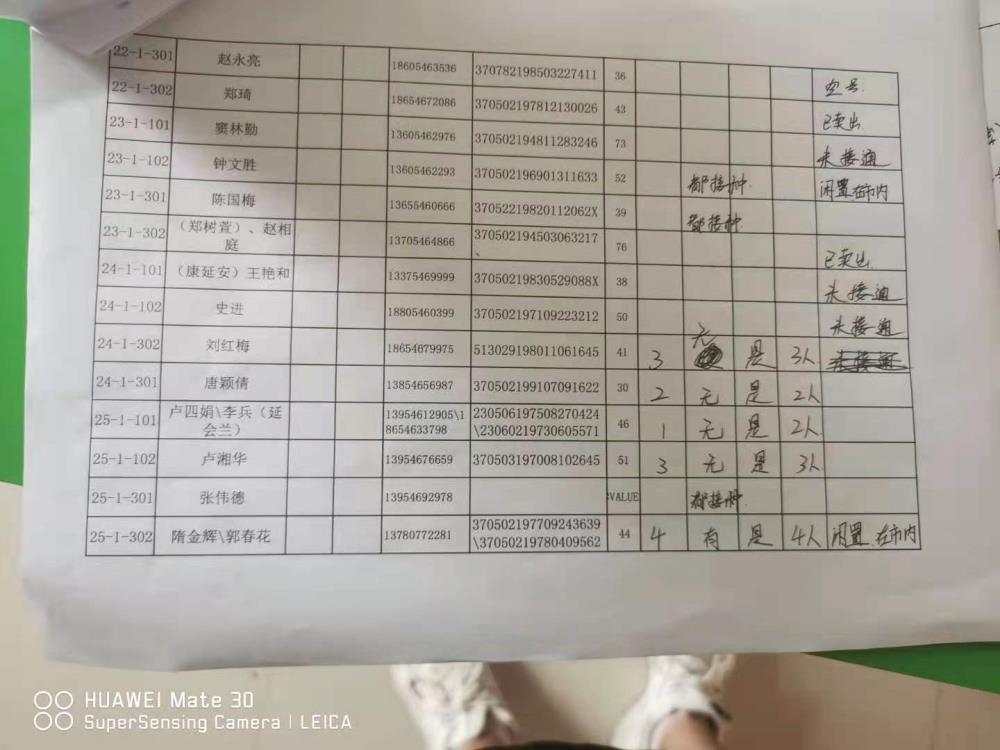 22-1-301 赵永亮 18605463536 370782198503227411 36 空号
22-1-302 郑琦 18654672086 370502197812130026 43 已卖出
23-1-101 窦林勤 13605462976 370502194811283246 73 未接通
23-1-102 钟文胜 13605462293 370502196901311633 52 都接种 闲置在市内
23-1-301 陈国梅 13655460666 37052219820112062X 39 都接种
23-1-302 （郑树萱）、赵相庭 13705464866 370502194503063217、 76 已卖出
24-1-101 （康延安）王艳和 13375469999 37050219830529088X 38 未接通
24-1-102 史进 18805460399 370502197109223212 50 未接通
24-1-302 刘红梅 18654679975 513029198011061645 41 3 无 是 3人 未接通
24-1-301 唐颖倩 13854656987 370502199107091622 30 2 无 是 2人
25-1-101 卢四娟\李兵（延会兰） 13954612905\18654633798 230506197508270424\23060219730605571 46 1 无 是 2人
25-1-102 卢湘华 13954676659 370503197008102645 51 3 无 是 3人
25-1-301 张伟德 13954692978 :VALUE 都接种
25-1-302 隋金辉\郭春花 13780772281 370502197709243639\37050219780409562 44 4 有 是 4人 闲置 在市内
HUAWEI Mate 30
SuperSensing Camera | LEICA